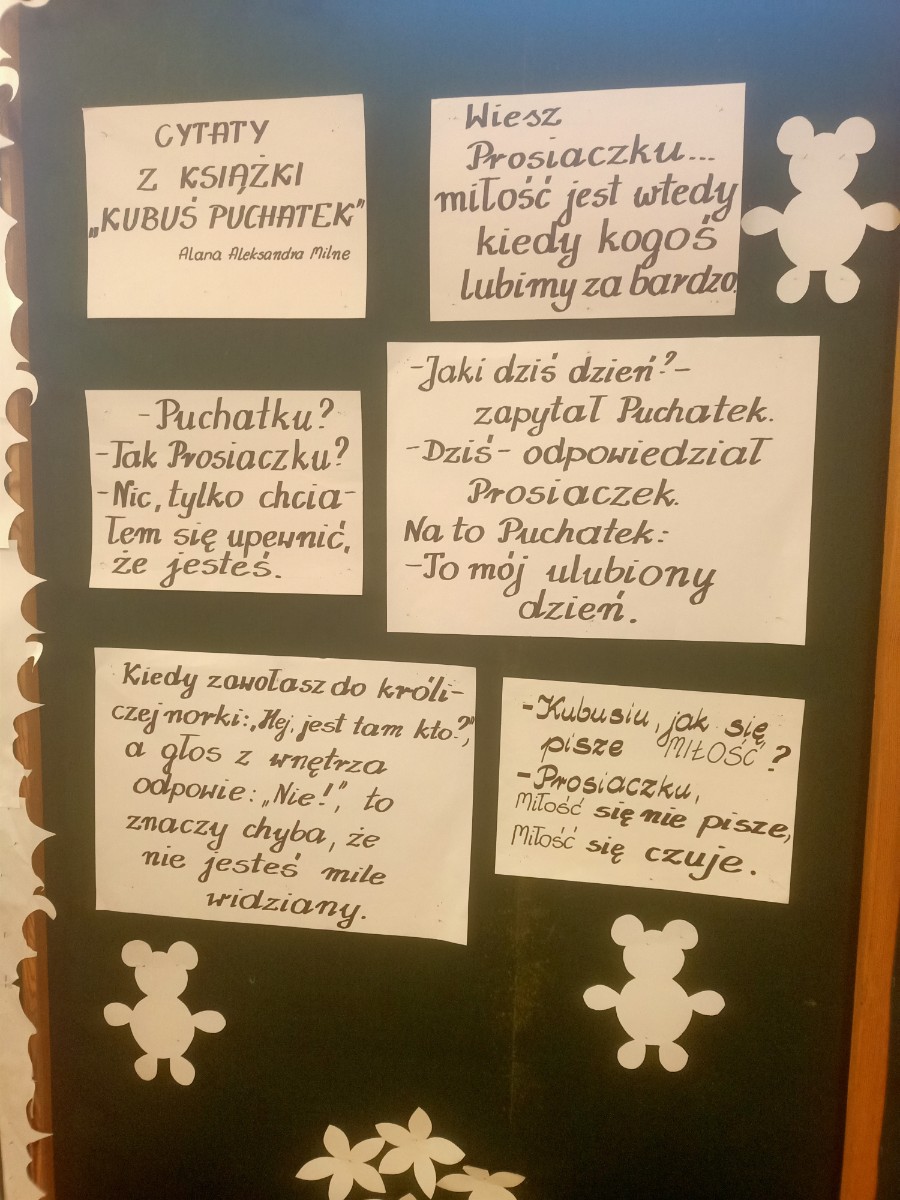 CYTATY
Z KSIĄŻKI
„KUBUŚ PUCHATEK"
Alana Aleksandra Milne
Wiesz
Prosiaczku...
miłość jest wtedy
kiedy kogoś
lubimy za bardzo.
-Puchatku?
-Tak Prosiaczku?
-Nic, tylko chcia-
łem się upewnić,
że jesteś.
-Jaki dziś dzień?-
zapytał Puchatek.
-Dziś- odpowiedział
Prosiaczek.
Na to Puchatek:
-To mój ulubiony
dzień.
Kiedy zawołasz do króli-
czej norki: „Hej, jest tam kto?",
a głos z wnętrza
odpowie: „Nie!", to
znaczy chyba, że
nie jesteś mile
widziany.
-Kubusiu, jak się
pisze „MIŁOŚĆ"?
-Prosiaczku,
MIŁOŚĆ się nie pisze,
MIŁOŚĆ się czuje.